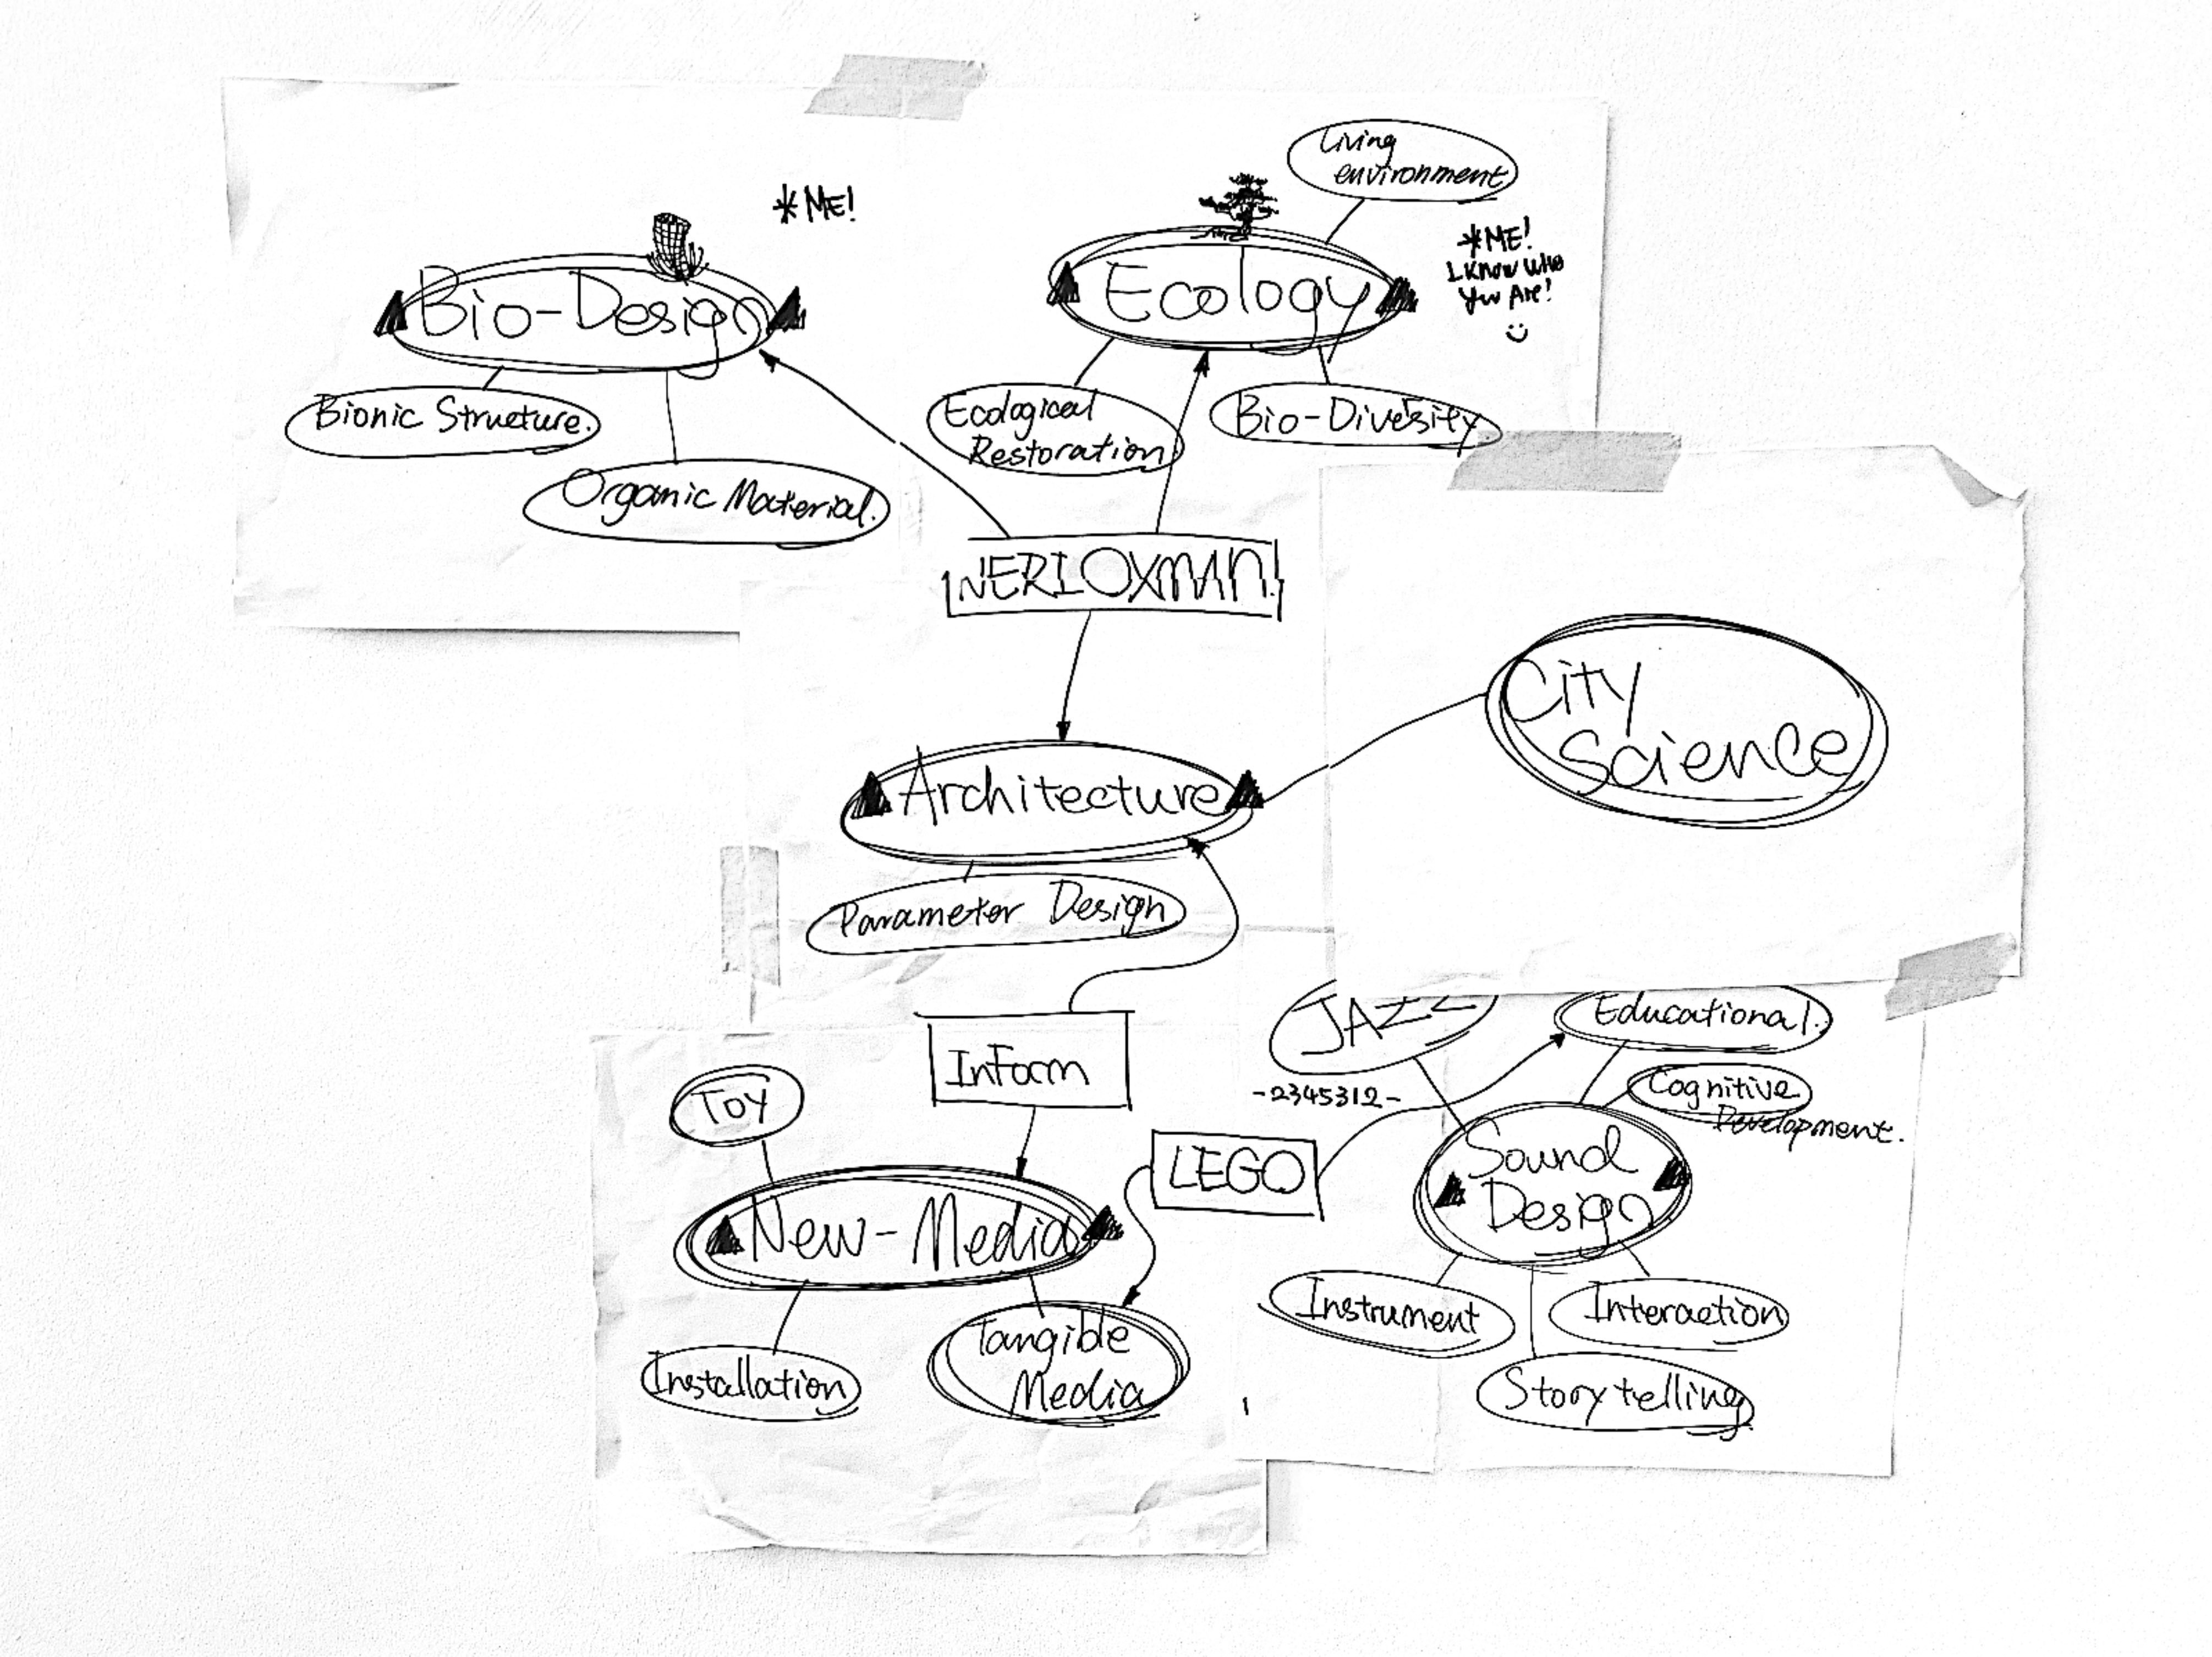 *ME!
Bio-Design
Bionic Structure.
Organic Material.
Living
environment
*ME!
I Know who
You Are!
Ecology
Ecological
Restoration
Bio-Diversity
NERI OXMAN
City
Science
Architecture
Parameter Design
InForm
Toy
New-Media
Installation
Tangible
Media
LEGO
JAZZ
-2345312-
Educational.
Cognitive
Development.
Sound
Design
Instrument
Interaction
Storytelling